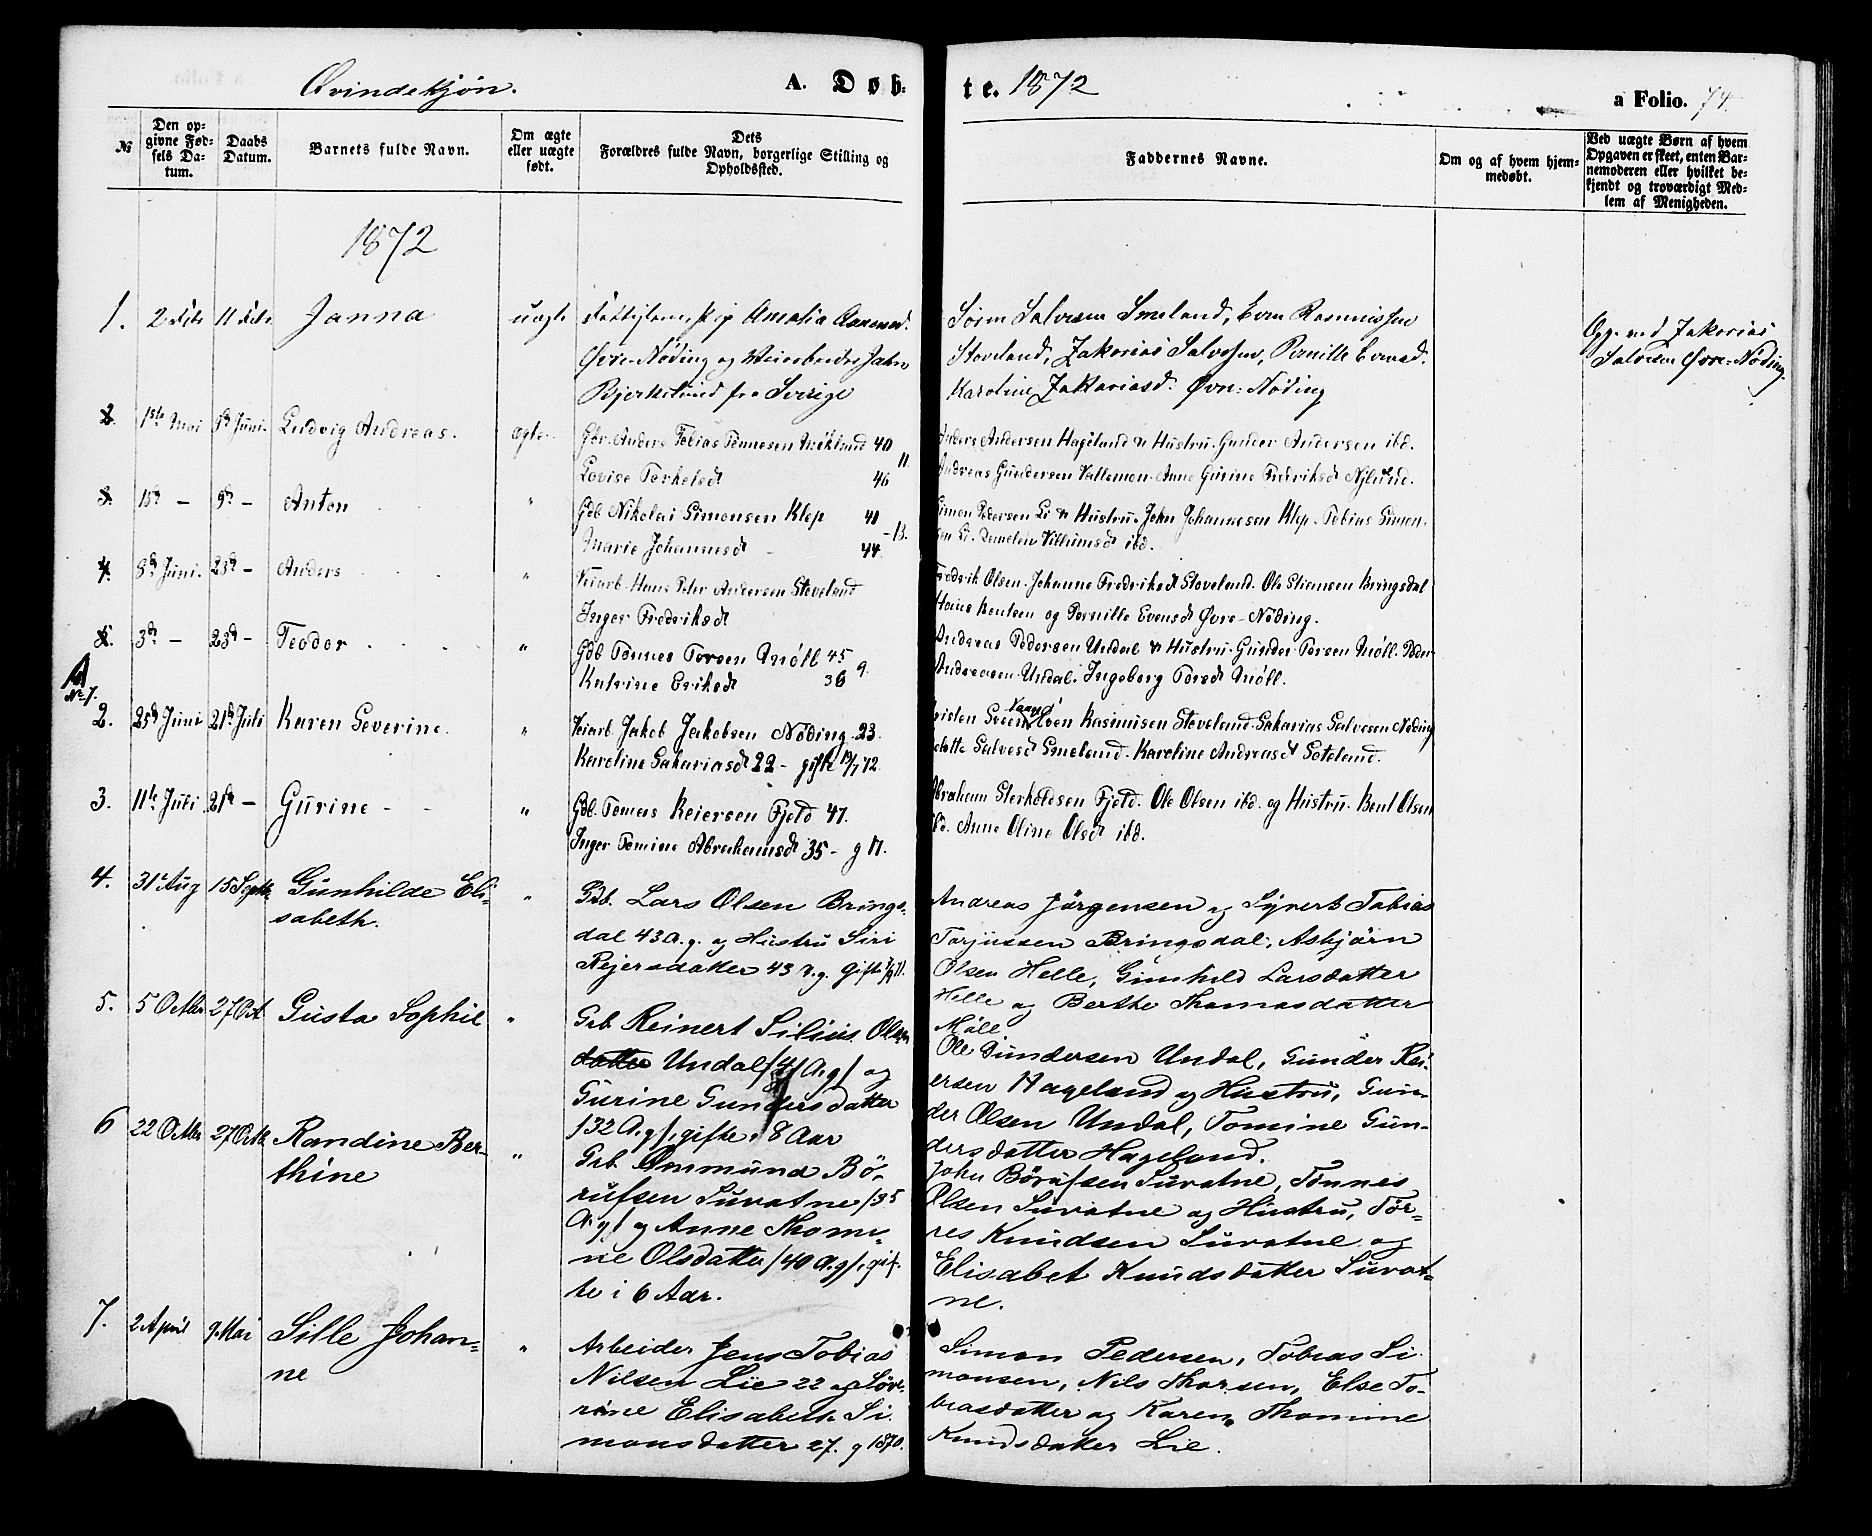 Qvindekjøn.
A. Døb-
te. 1872
a Folio. 74
№
Den op-
givne Fød-
sels Da-
tum.
Daabs
Datum.
Barnets fulde Navn.
Om ægte
eller uægte
født.
Dets
Forældres fulde Navn, borgerlige Stilling og
Opholdssted.
Faddernes Navne.
Om og af hvem hjem-
medøbt.
Ved uægte Børn af hvem
Opgaven er skeet, enten Bar-
nemoderen eller hvilket be-
kjendt og troværdigt Med-
lem af Menigheden.
1872
1. 2 11 Janna uægte Amalia
Øvre-Nøding og Veiarbeider
Bjerkelund fra Sverige
Sören Salvesen Smeland, Even Rasmussen
Stoveland, Zakarias Salvesen, Pernille Evensd.
Karoline Zakariasd. Øvre-Nöding
Opg. ved Zakarias
Salvesen Øvre-Nöding.
2. 1ste Mai Juni Ludvig Andreas. ægte Anders Tobias Tönnesen 40
Lovise Torkelsdt 46 11
Anders Andersen Hageland & Hustru. Gunder Andersen ibd.
Andreas Gundersen Vallemon. Anne Gurine Fredriksdt
3. 15de - 9de - Anton " Gdb Nikolai Simonsen Klep 41
Marie Johannesdt - 44 - 13.
Simon Pedersen Li & Hustru. John Johannesen Klep. Tobias Simon-
sen Li. Villumsdt ibd.
4. 8de Juni. 23de - Anders " Veiarb. Hans Peter Andersen Stoveland
Inger Fredriksdt
Fredrik Olsen. Johanne Fredriksdt Stoveland. Ole Stiansen Bringsdal
Hans Knutsen og Pernille Evensdt Øvre-Nöding.
5. 3de - 23de - Teodor " Gdb Tönnes Torsen Möll 45
Katrine Eriksdt 36 9.
Andreas Pedersen Undal & Hustru. Gunder Torsen Möll. Peder
Andreasen Undal. Ingeborg Torsdt Möll.
A
No. 1.
2. 25de Juni 21de Juli Karen Severine. " Veiarb. Jakob Jakobsen Nöding. 23.
Karoline Sakariasdt 22 - gifte 19/7 72.
Even Rasmusen Stoveland. Sakarias Salvesen Nöding
Salvesdt Smeland. Karoline Andreasdt Soteland.
3. 11te Juli 21de - Gurine - - " Gdb. Tomas Reiersen Fjeld 47.
Inger Tomine Abrahamsdt 35 - g 17.
Abraham Sterkoldsen Fjeld. Ole Olsen ibd. og Hustru. Bent Olsen
ibd. Anne Oline Olsdt ibd.
4. 31te Aug 15 Septb. Gunhilde Eli-
sabeth. " Gdb. Lars Olsen Brings-
dal 43 A. g. og Hustru Siri
Reiersdatter 43 A. g. gifte
Andreas Jörgensen og Syvert Tobias
Torjussen Bringsdal, Asbjörn
Olsen Helle, Gunhild Larsdatter
Helle og Berthe Thomasdatter
Möll
5. 5 Octbr 27 Oct Gusta Sophie " Grb. Reinert Silius Olsen
datter Undal /41 A. g/ og
Gurine Gundersdatter
/32 A. g/, gifte i 8 Aar
Ole Gundersen Undal, Gunder Rei-
ersen Hageland og Hustru, Gun-
der Olsen Undal, Tomine Gun-
dersdatter Hageland.
6 22 Octbr 27 Octb Randine Ber-
thine " Grb. Ommund Bö-
rufsen Suvatne /35
A. g/ og Anne Thomi-
ne Olsdatter /40 A. g/, gif-
te i 6 Aar.
John Börufsen Suvatne, Tönnes
Olsen Suvatne og Hustru, Tör-
res Knudsen Suvatne og
Elisabet Knudsdatter Suvat-
ne.
7. 2 April 9 Mai Sille Johan-
ne " Arbeider Jens Tobias
Nilsen Lie 22 og Söve-
rine Elisabeth Si-
monsdatter 27. g 1870.
Simon Pedersen, Tobias Si-
monsen, Nils Thorsen, Else To-
biasdatter og Karen Thomine
Knudsdatter Lie.